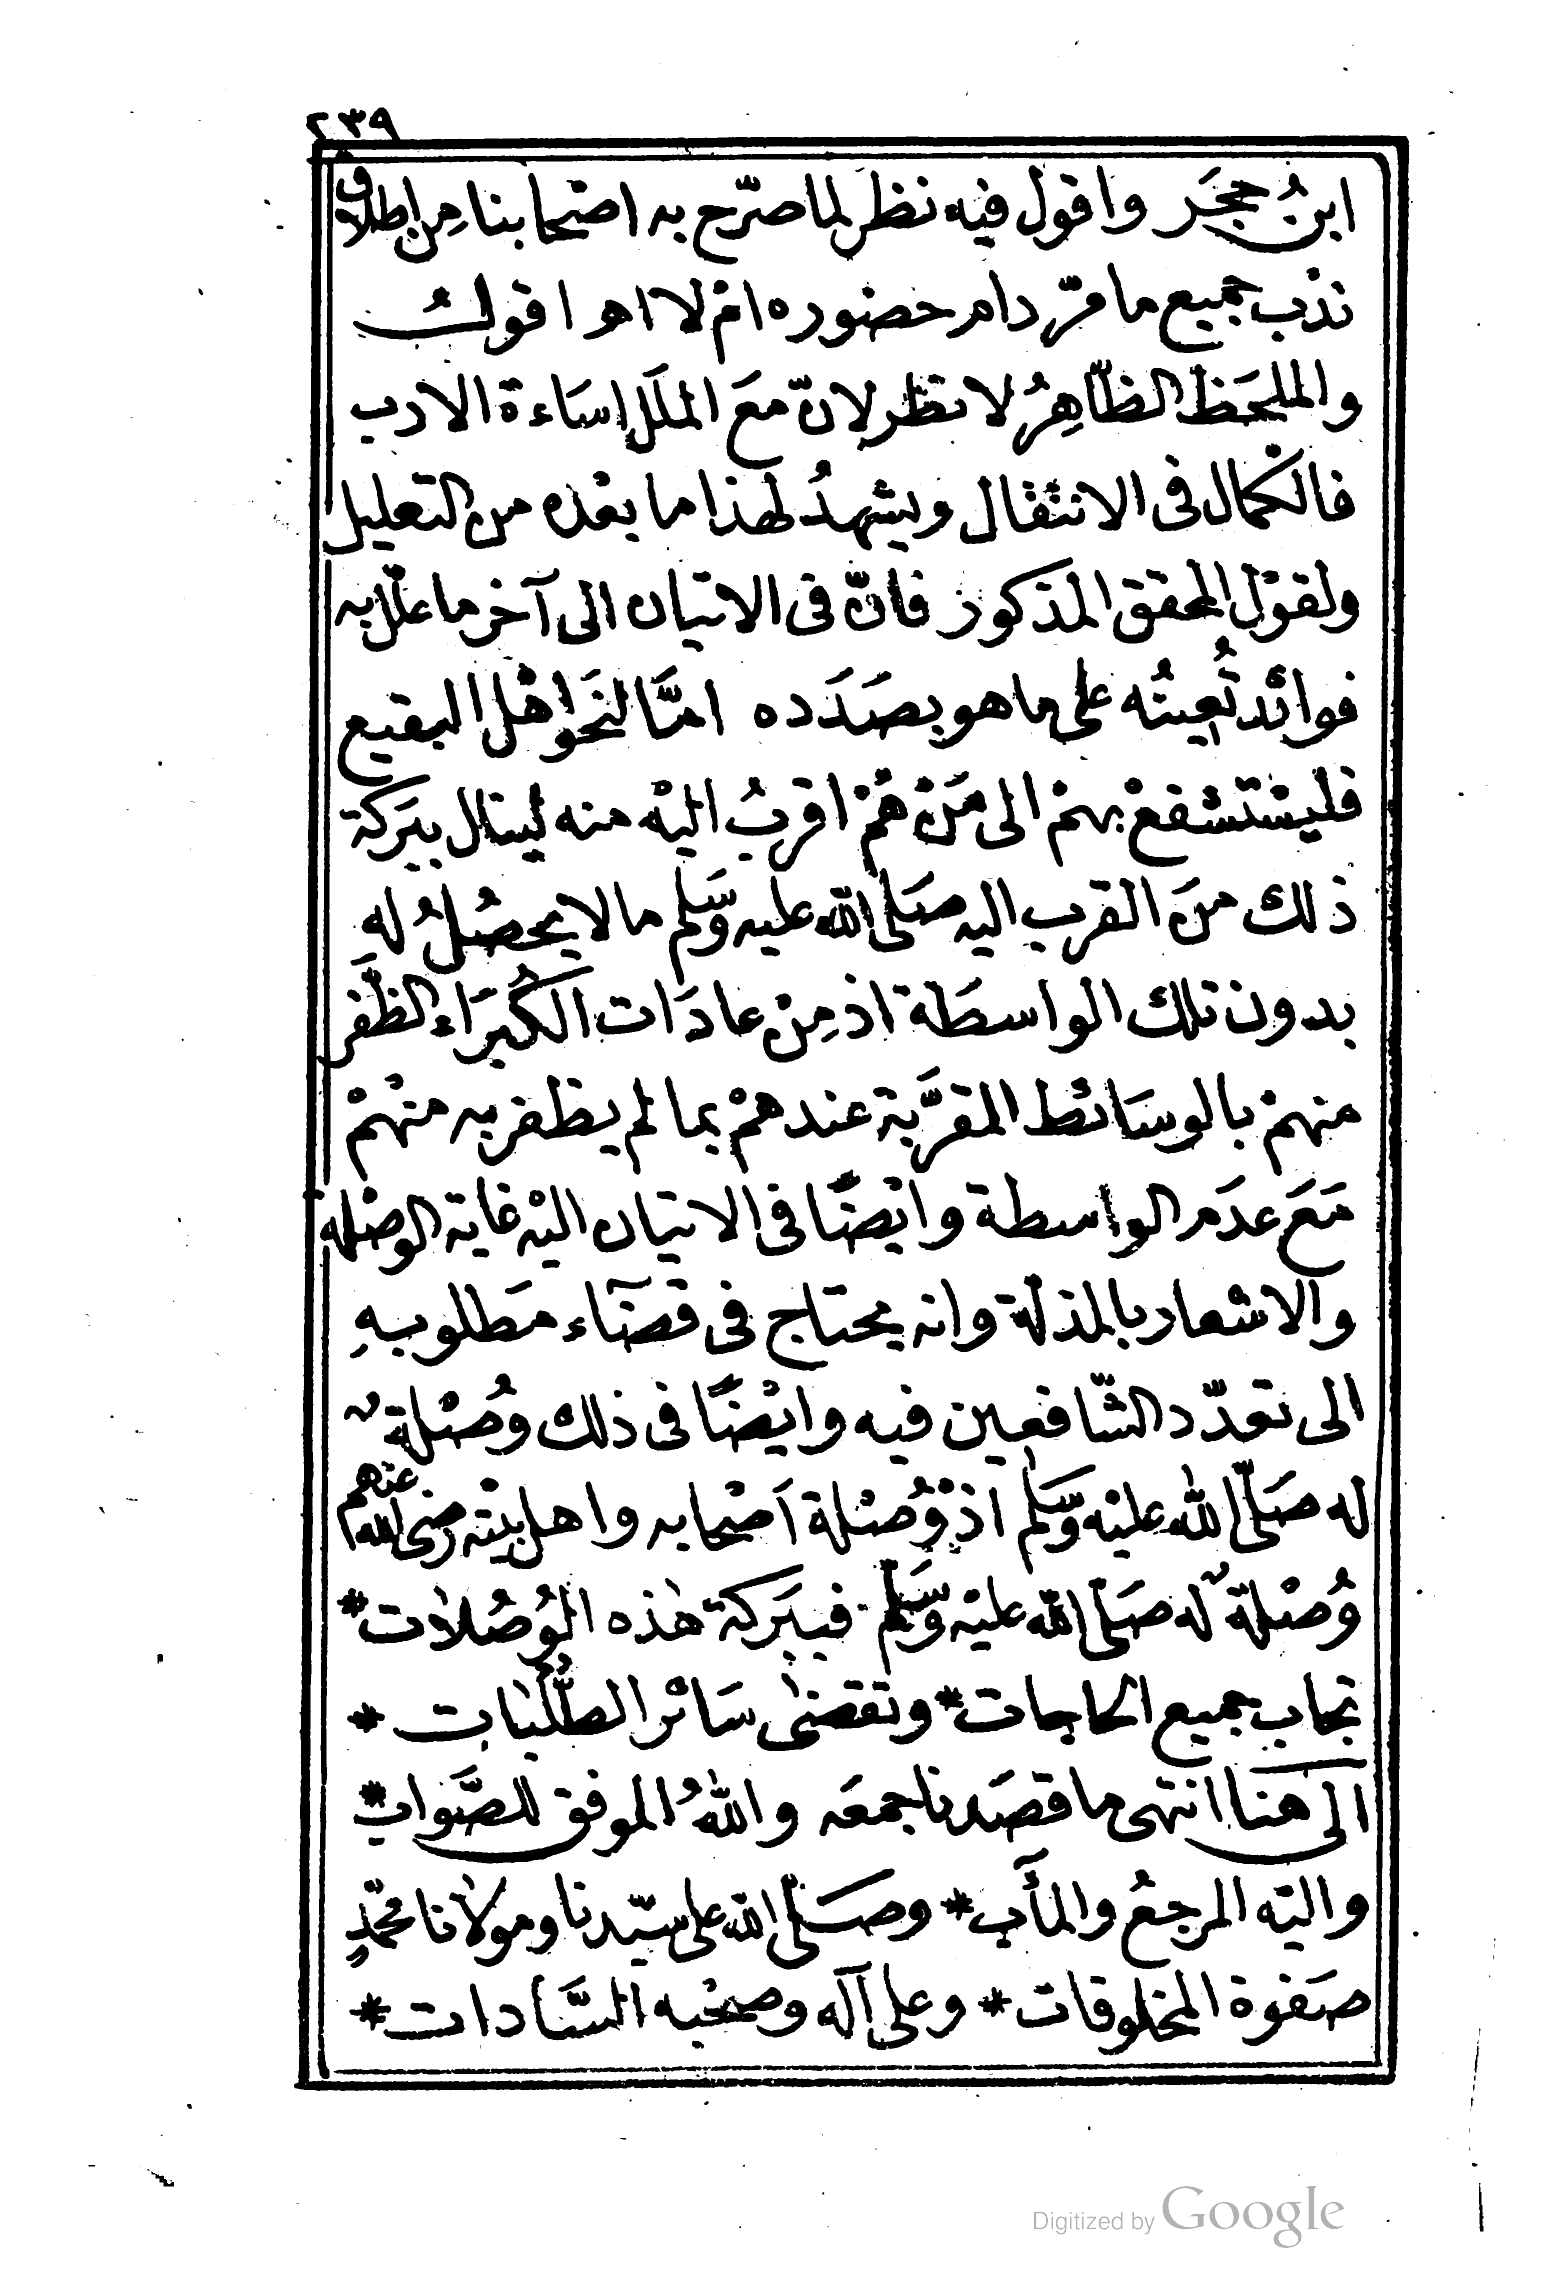 ٢٣٩
ابنُ حجَر واقول فيه نظر لما صرّح به اصْحابنا مِن اطلاق
ندْب جميع ما مرّ دام حضوره امْ لا اهـ اقولُ
والملحَظ الظّاهِرُ لا نظر لانّ معَ الملَل اسَاءة الادب
فالكْمال فى الانتقال ويشهدُ لهذا ما بعْده من التعليل
ولقوْل المحقق المذكور فانّ فى الاتيان الى آخر ما علّل به
فوائد تُعِينُه على ما هو بصَدَده امّا لنَحْو اهْل البقيع
فليسْتشْفعْ بهمْ الى مَنْ همْ اقربُ اليْه منه لينال ببَركة
ذلك منَ القرب اليه صَلى الله عليه وَسَّلم ما لا يحصُلُ له
بدون تلك الواسطَة اذ مِنْ عادَات الكُبرَاء الظَّفر
منهمْ بالوسَائط المقرَّبة عندهمْ بما لم يظفر به منهُمْ
مَعَ عدَم الواسطة وايْضًا فى الاتيان اليْه غاية الوصْلة
والاشعار بالمذلّة وانه يحتاج فى قضَآء مَطلوبهِ
الى تعدّد الشّافعين فيه وايْضًا فى ذلك وُصْلةٌ
له صَلّى الله عليْه وَسَّلم اذْ وُصْلة اَصْحابه واهل بيْته رضى الله عنهم
وُصْلةٌ له صَلى الله عليْه وَسَّلم فببَركة هٰذه الوُصُلات *
تجاب جميع الحاجات * وتقضىٰ سَائر الطَّلَبات *
الى هنا انتهى ما قصَدنا جمعَه واللهُ الموفق للصَّواب *
واليْه المرجعُ والمآب * وصَلّى الله على سيّدنا ومولانا محمّدٍ
صَفوة المخلوقات * وعلى آله وصحْبه السَّادات *
Digitized by Google